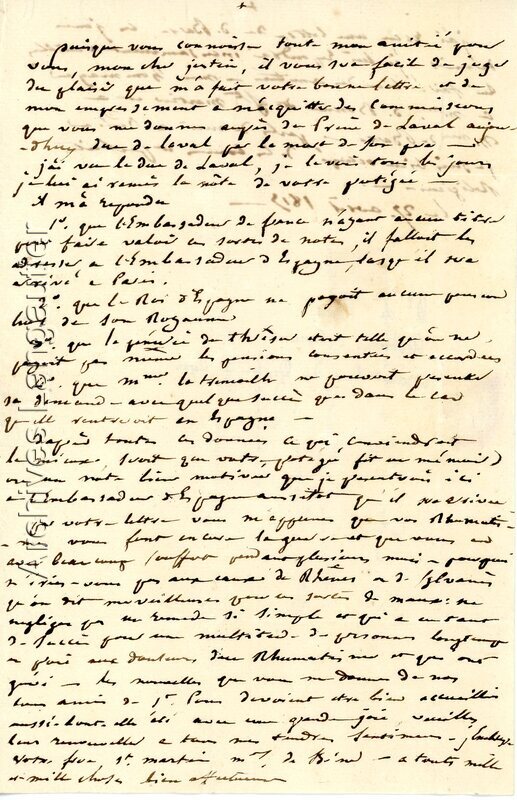 puisque vous connoissez toute mon amitié pour
vous, mon cher justin, il vous sera facile de juger
du plaisir que m'a fait votre bonne lettre et de
mon empressement a m'acquitter des Commissions
que vous me donnes auprès du Prince de Laval aujour-
-dhuy duc de Laval par la mort de son père —
j'ai vu le duc de Laval, je le vois tous les jours
je lui ai remis la nôte de votre protégée —
il m'a repondu
1°. que l'Embassadeur de france n'ayant aucun titre
pour faire valoir ces sortes de notes, il falloit les
adresser a l'Embassadeur d'Espagne, lorsqu'il sera
arrivé a Paris.
2°. que le Roi d'Espagne ne payoit aucune pension
hors de son Royaume
3°. que la pénurie du thrésor etoit telle qu'on ne
payoit pas même les pensions consenties et accordées
que mme la tremoille ne pouvoit presenter
sa demande avec quelque succès que dans le cas
qu'elle rentreroit en Espagne —
D'après toutes ces données ce qui conviendroit
le mieux, seroit que votre protégé fit un mémoire
ou une note bien motivée que je presenterois ici
a l'Embassadeur d'Espagne aussitot qu'il arrivera
par votre lettre vous m'apprenez que vos Rhumatis-
vous font encore la guerre et que vous en
avez beaucoup souffert pendant plusieurs mois — pourquoi
n'iriez-vous pas aux eaux de Rhênes ou de Sylvanès
qu'on dit merveilleuses pour ces sortes de maux: ne
negligez pas un remede si simple et qui a eu tant
de succès pour une multitude de personnes longtemps
en proie aux douleurs du Rhumatisme et qui ont
guéri — les nouvelles que vous me donnez de nos
bons amis de St. Pons devoient etre bien accueillies
aussi l'ont-elle été avec une grande joie, veuillez
leur renouveller a tous mes tendres sentimens — j'embrasse
votre frère, St. martin
a toutes mille
et mille choses bien affectueuses